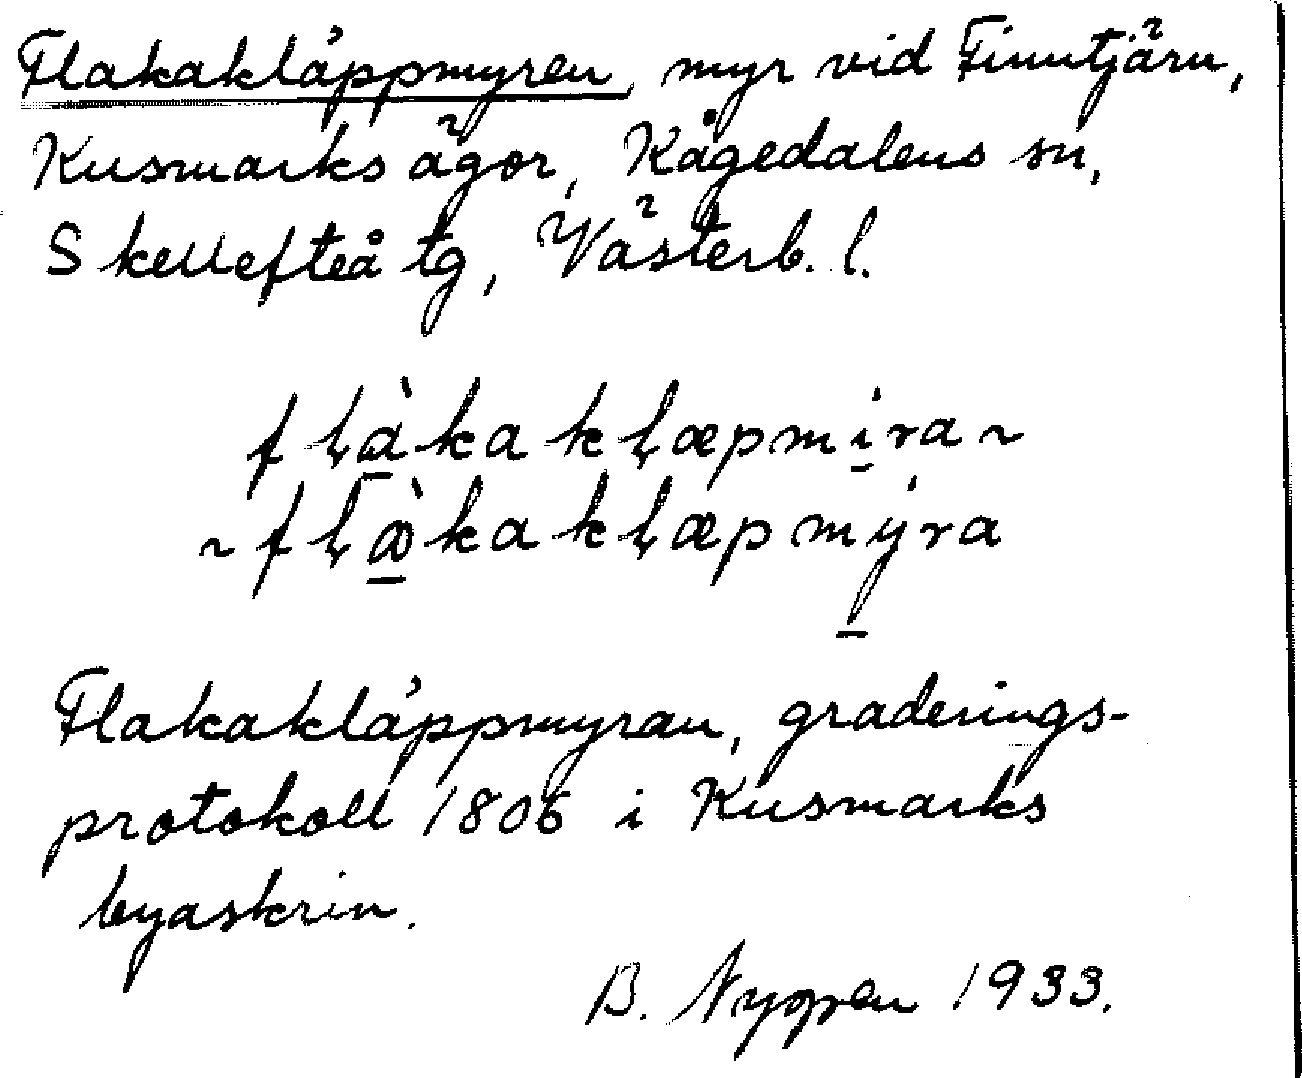 Flakakläppmyren, myr vid Finntjärn,
Kusmarks ägor, Kågedalens sn,
Skellefteå tg, Västerb. l.
flàkaklæpmíra ~
~ flæ̀kaklæpmýra
Flakakläppmyran, graderings-
protokoll 1806 i Kusmarks
byaskrin.
B. Nygren 1933.